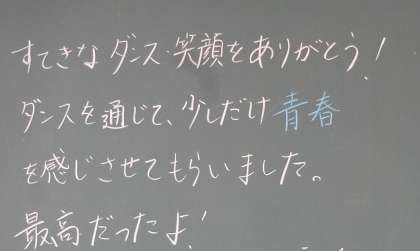 すてきなダンス・笑顔をありがとう!
ダンスを通じて、少しだけ青春
を感じさせてもらいました。
最高だったよ!